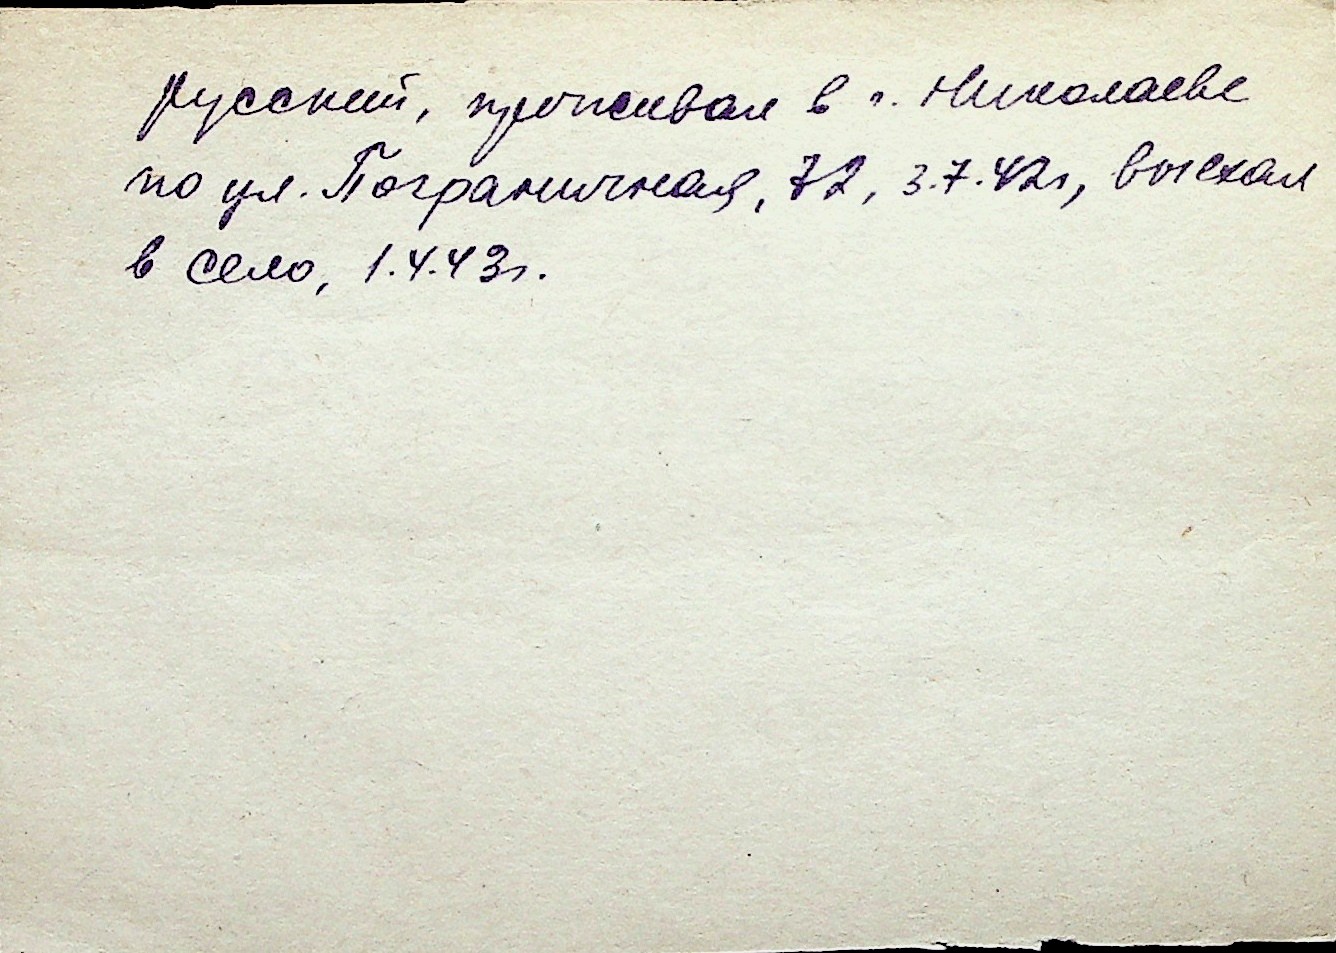 русский, проживал в г. Николаеве
по ул. Пограничная, 72, 3.7.42г, выехал
в село, 1.4.43г.